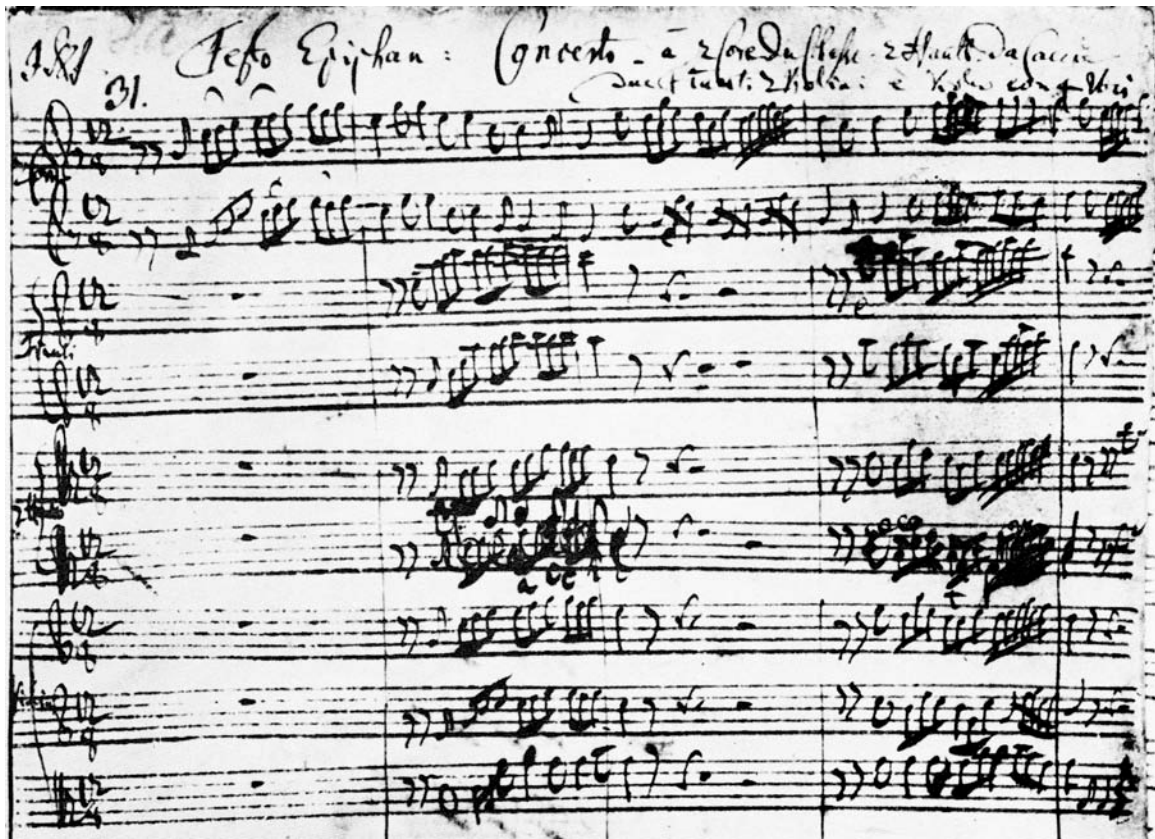 J. J. Festo Epiphan: Concerto. à 2 Core Du Chasse. 2 Hautb. da Caccia
due Fiauti. 2 Violini è Viola con 4 Voci
31.
Fiauti